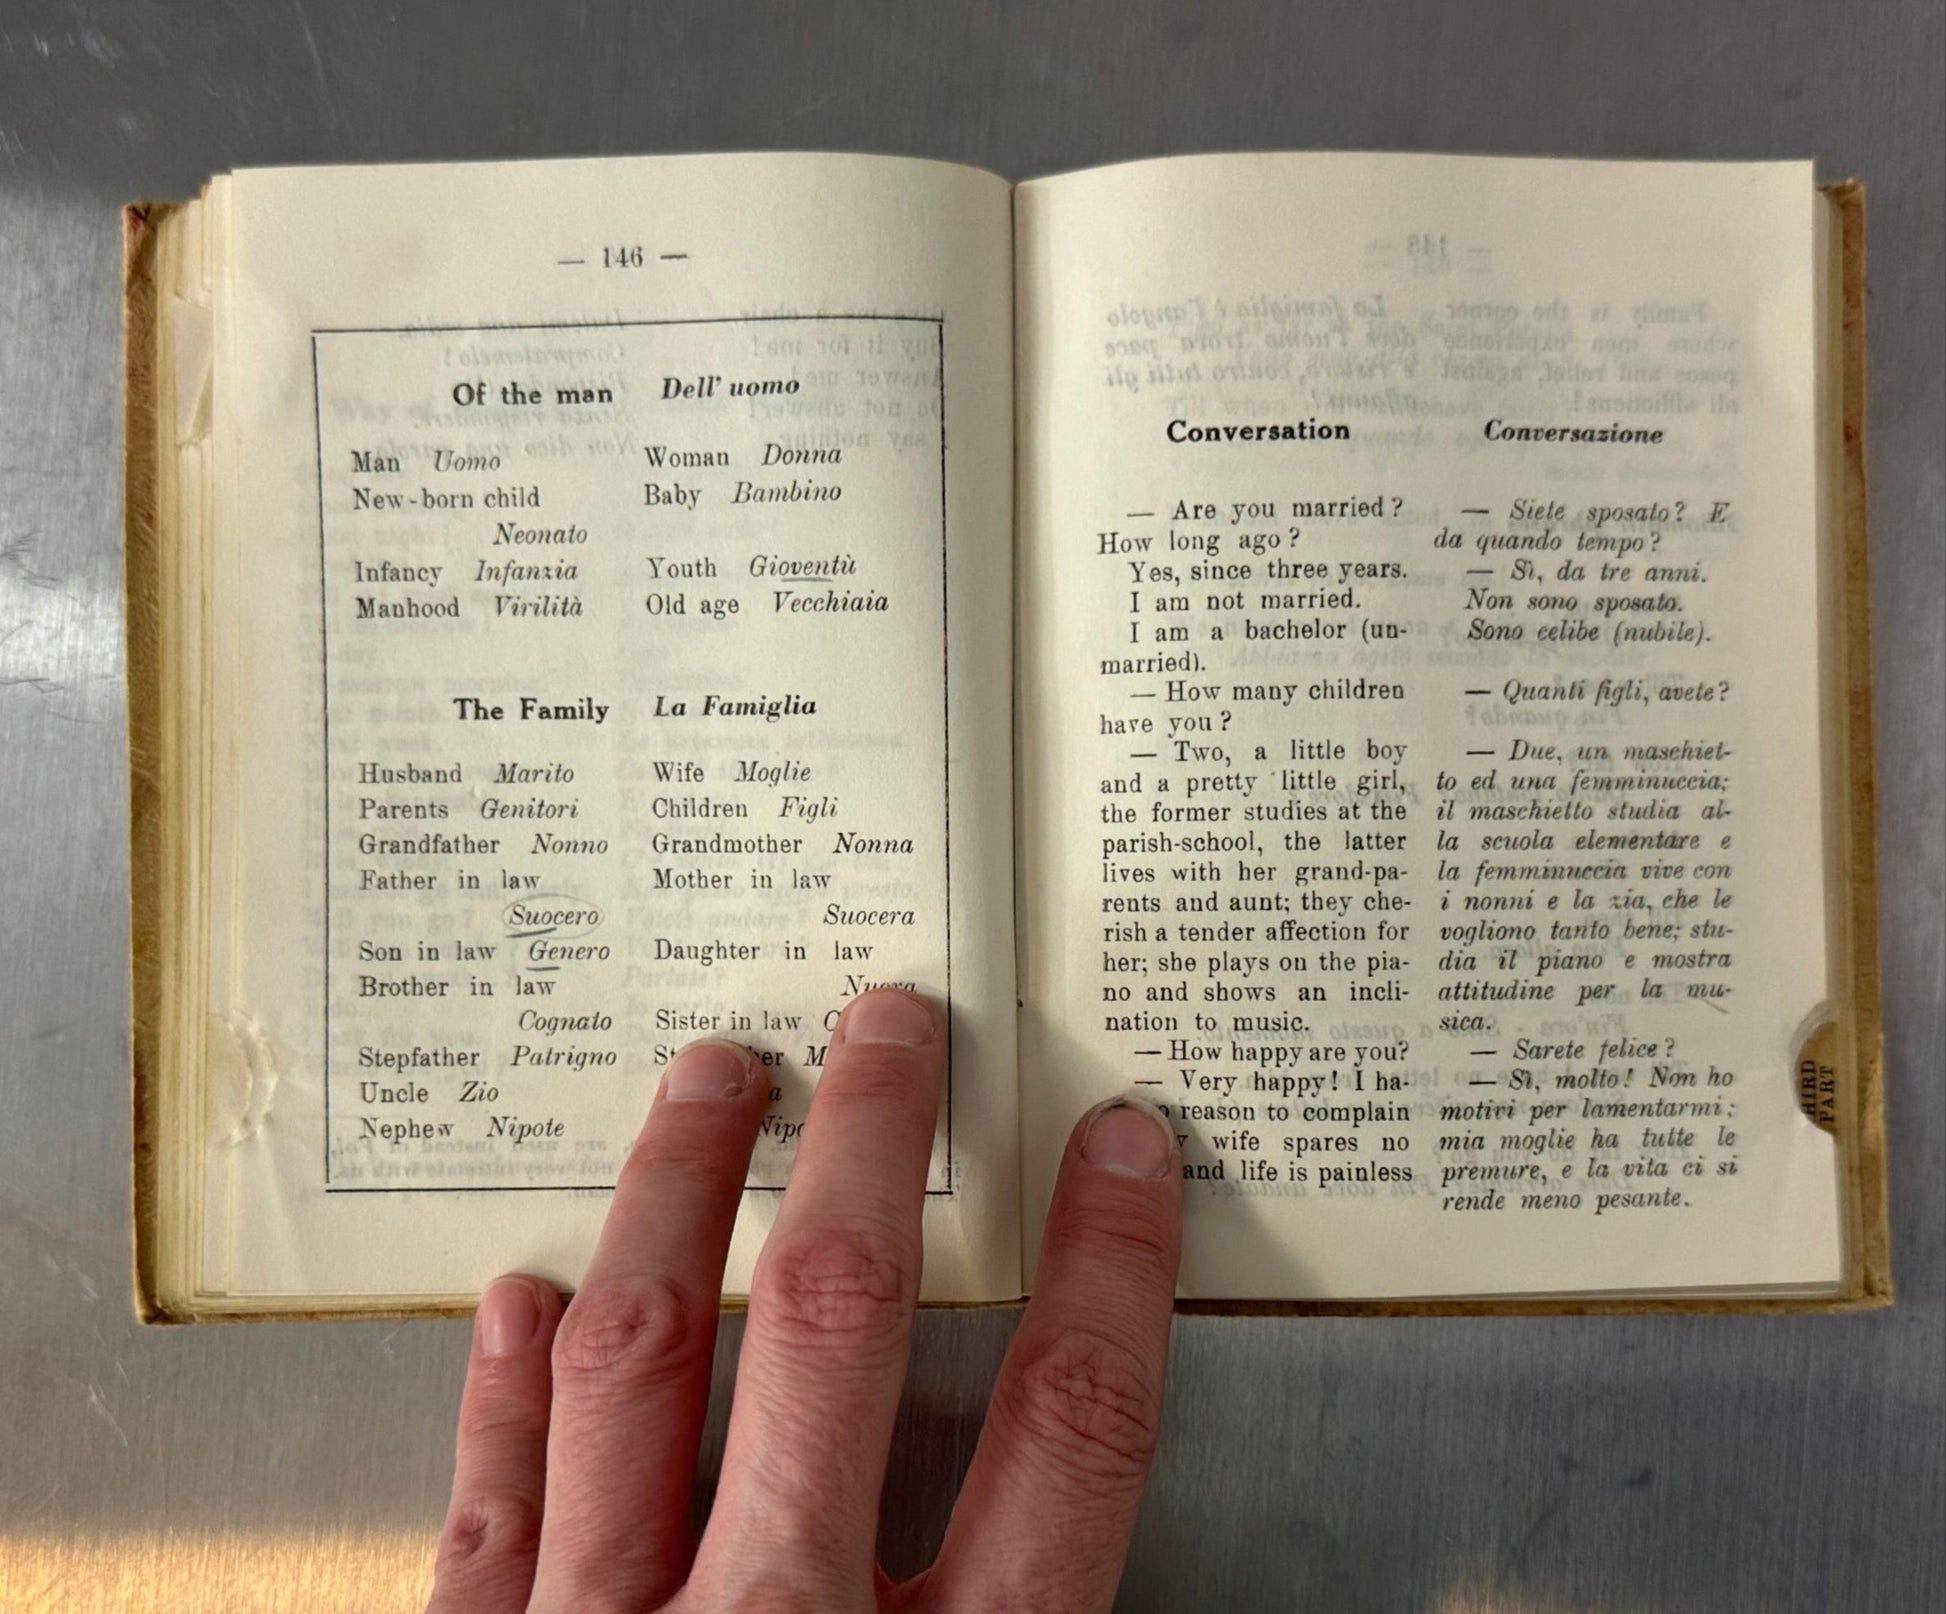 — 146 —
Of the man Dell' uomo
Man Uomo Woman Donna
New-born child Baby Bambino
Neonato
Infancy Infanzia Youth Gioventù
Manhood Virilità Old age Vecchiaia
The Family La Famiglia
Husband Marito Wife Moglie
Parents Genitori Children Figli
Grandfather Nonno Grandmother Nonna
Father in law Mother in law
Suocero Suocera
Son in law Genero Daughter in law
Brother in law
Cognato Sister in law
Stepfather Patrigno
Uncle Zio
Nephew Nipote
Conversation
— Are you married?
How long ago?
Yes, since three years.
I am not married.
I am a bachelor (un-
married).
— How many children
have you?
— Two, a little boy
and a pretty little girl,
the former studies at the
parish-school, the latter
lives with her grand-pa-
rents and aunt; they che-
rish a tender affection for
her; she plays on the pia-
no and shows an incli-
nation to music.
— How happy are you?
— Very happy! I ha-
reason to complain
wife spares no
and life is painless
Conversazione
— Siete sposato? E
da quando tempo?
— Sì, da tre anni.
Non sono sposato.
Sono celibe (nubile).
— Quanti figli, avete?
— Due, un maschiet-
to ed una femminuccia;
il maschietto studia al-
la scuola elementare e
la femminuccia vive con
i nonni e la zia, che le
vogliono tanto bene; stu-
dia il piano e mostra
attitudine per la mu-
sica.
— Sarete felice?
— Sì, molto! Non ho
motivi per lamentarmi;
mia moglie ha tutte le
premure, e la vita ci si
rende meno pesante.
PART